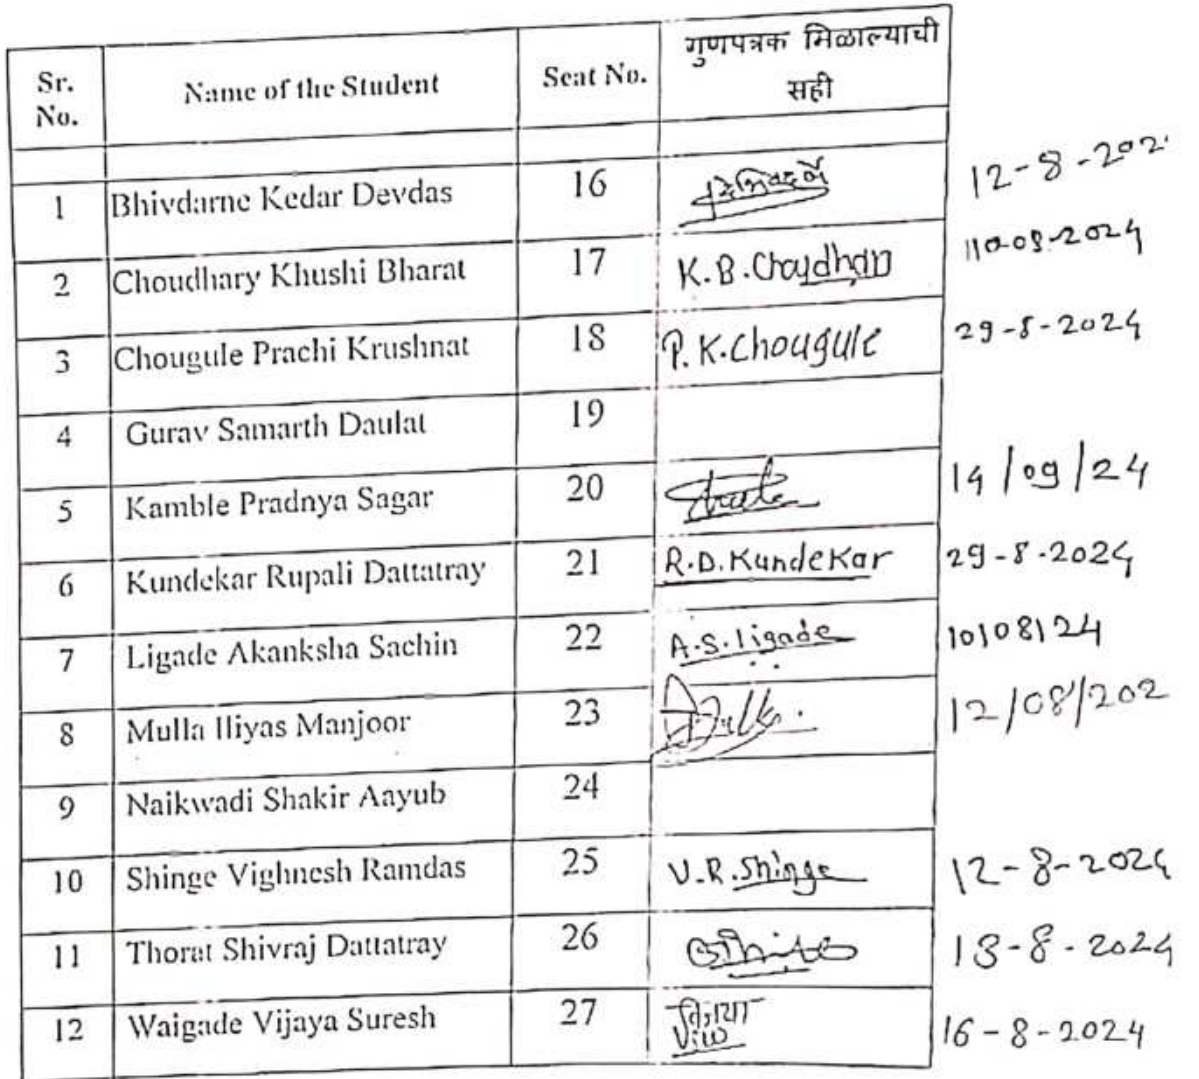 Sr. No. Name of the Student Seat No. गुणपत्रक मिळाल्याची सही
1 Bhivdarne Kedar Devdas 16 12-8-202
2 Choudhary Khushi Bharat 17 K.B.Choudhari 10-08-2024
3 Chougule Prachi Krushnat 18 P.K.Chougule 29-8-2024
4 Gurav Samarth Daulat 19
5 Kamble Pradnya Sagar 20 14/09/24
6 Kundekar Rupali Dattatray 21 R.D.Kundekar 29-8-2024
7 Ligade Akanksha Sachin 22 A.S.ligade 10/08/24
8 Mulla Iliyas Manjoor 23 12/08/202
9 Naikwadi Shakir Aayub 24
10 Shinge Vighnesh Ramdas 25 V.R.Shinge 12-8-2024
11 Thorat Shivraj Dattatray 26 13-8-2024
12 Waigade Vijaya Suresh 27 16-8-2024